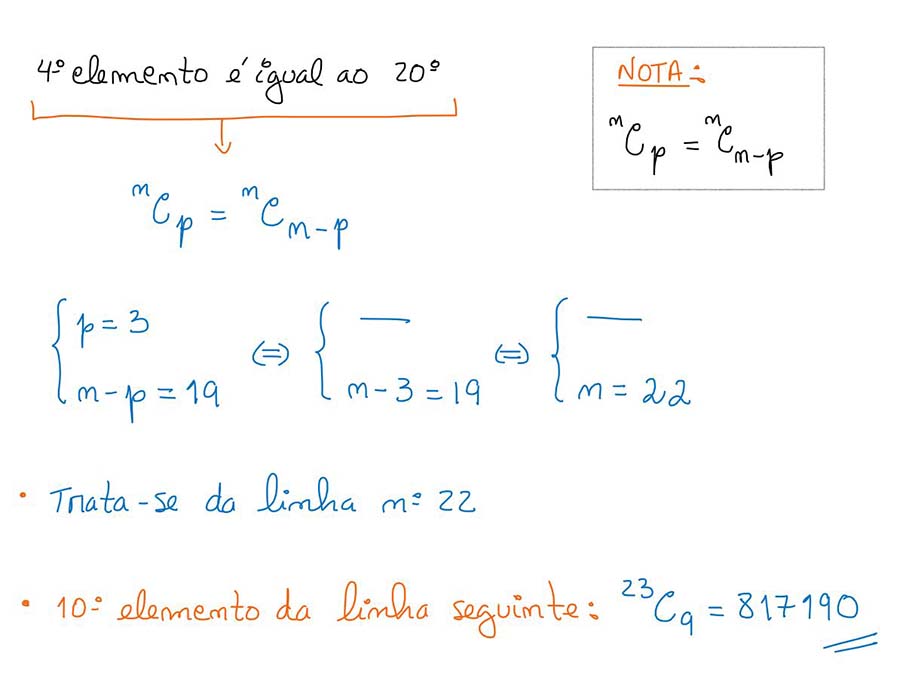 4º elemento é igual ao 20º
NOTA:
ᵐCₚ = ᵐCₘ₋ₚ
ᵐCₚ = ᵐCₘ₋ₚ
{ p = 3 ⇔ { — ⇔ { —
{ m - p = 19 { m - 3 = 19 { m = 22
• Trata-se da linha nº 22
• 10º elemento da linha seguinte: ²³C₉ = 817190